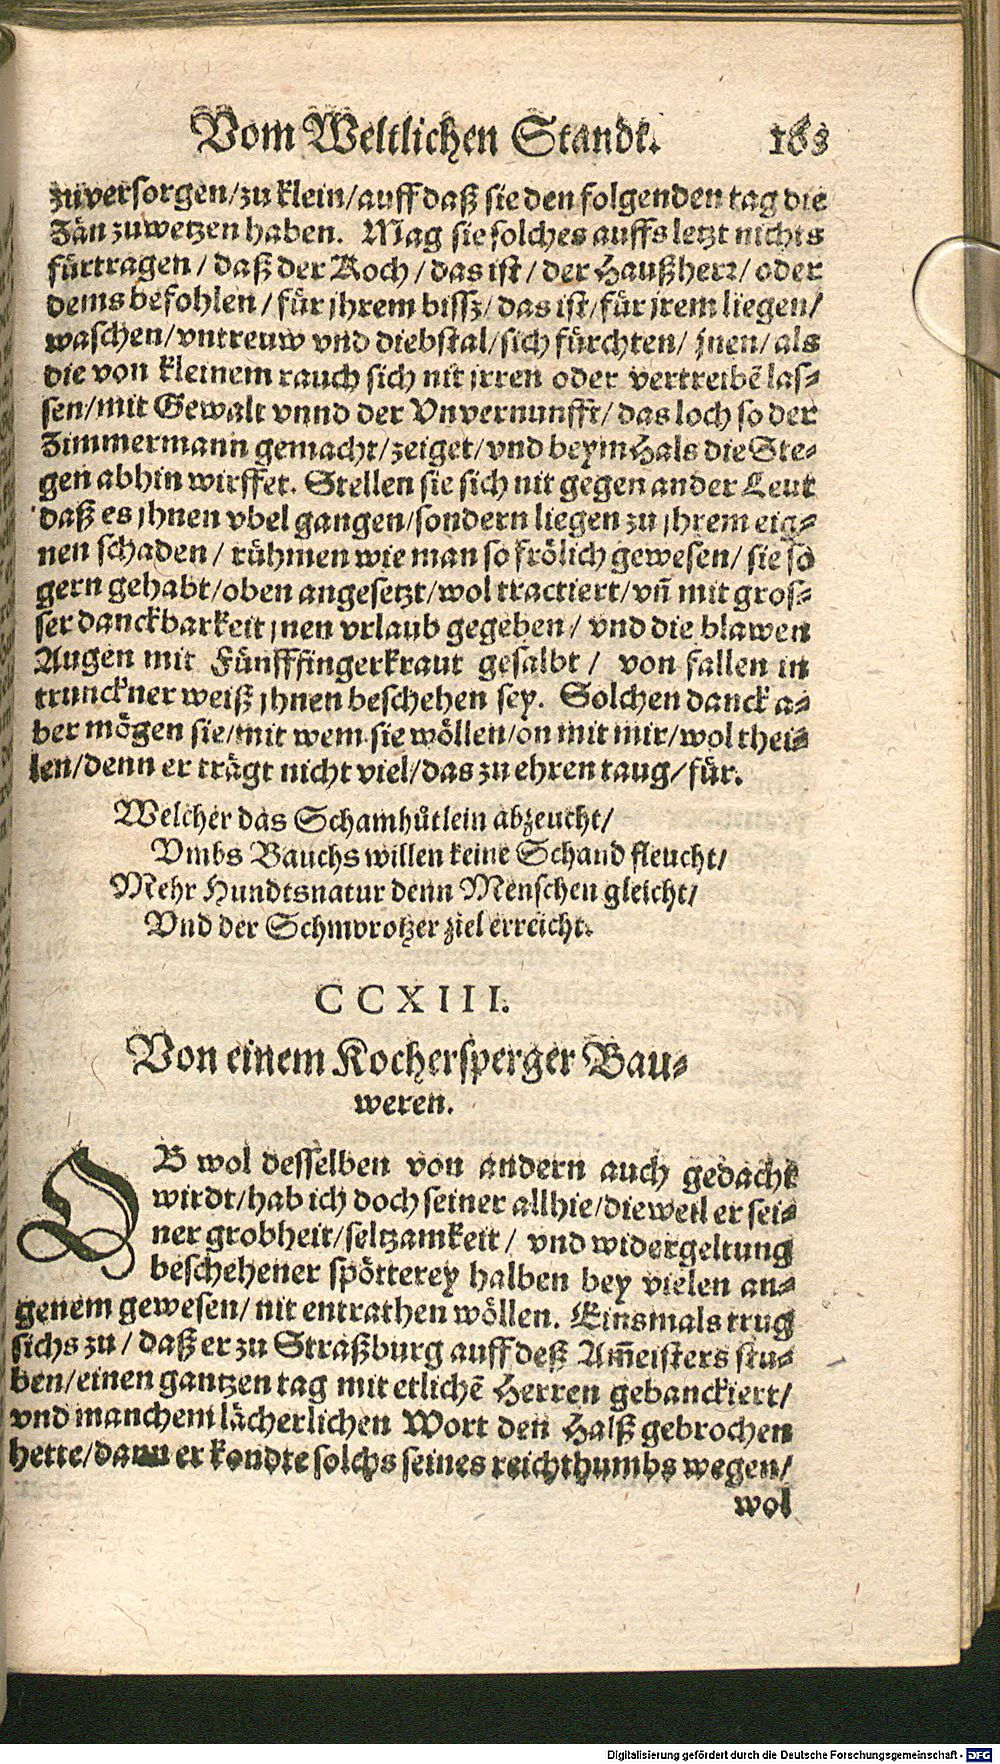 Vom Weltlichen Standt. 163
zuversorgen/zu klein/auff daß sie den folgenden tag die
Zän zuwetzen haben. Mag sie solches auffs letzt nichts
fürtragen / daß der Koch / das ist / der Haußherr / oder
dems befohlen / für jhrem bissz / das ist / für jrem liegen/
waschen/vntreuw vnd diebstal/sich fürchten/ jnen/ als
die von kleinem rauch sich nit jrren oder vertreibē las⸗
sen/mit Gewalt vnnd der Vnvernunfft/das loch so der
Zimmermann gemacht/zeiget/vnd beym Hals die Ste⸗
gen abhin wirffet. Stellen sie sich nit gegen ander Leut
daß es jhnen vbel gangen/sondern liegen zu jhrem eig⸗
nen schaden / rühmen wie man so frölich gewesen/ sie so
gern gehabt/oben angesetzt/wol tractiert/vñ mit gros⸗
ser danckbarkeit jnen vrlaub gegeben / vnd die blawen
Augen mit Fünfffingerkraut gesalbt / von fallen in
trunckner weiß jhnen beschehen sey. Solchen danck a⸗
ber mögen sie/mit wem sie wöllen/on mit mir/wol thei⸗
len/denn er trägt nicht viel/das zu ehren taug/für.
Welcher das Schamhütlein abzeucht/
Vmbs Bauchs willen keine Schand fleucht/
Mehr Hundtsnatur denn Menschen gleicht/
Vnd der Schmorotzer ziel erreicht.
CCXIII.
Von einem Kochersperger Bau⸗
weren.
OB wol desselben von andern auch gedacht
wirdt/hab ich doch seiner allhie/dieweil er sei⸗
ner grobheit/seltzamkeit / vnd widergeltung
beschehener spötterey halben bey vielen an⸗
genem gewesen/ nit entrathen wöllen. Einsmals trug
sichs zu / daß er zu Straßburg auff deß Am̄eisters stu⸗
ben/einen gantzen tag mit etlichē Herren gebanckiert/
vnd manchem lächerlichen Wort den Halß gebrochen
hette/dann er kondte solchs seines reichthumbs wegen/
wol
Digitalisierung gefördert durch die Deutsche Forschungsgemeinschaft - DFG